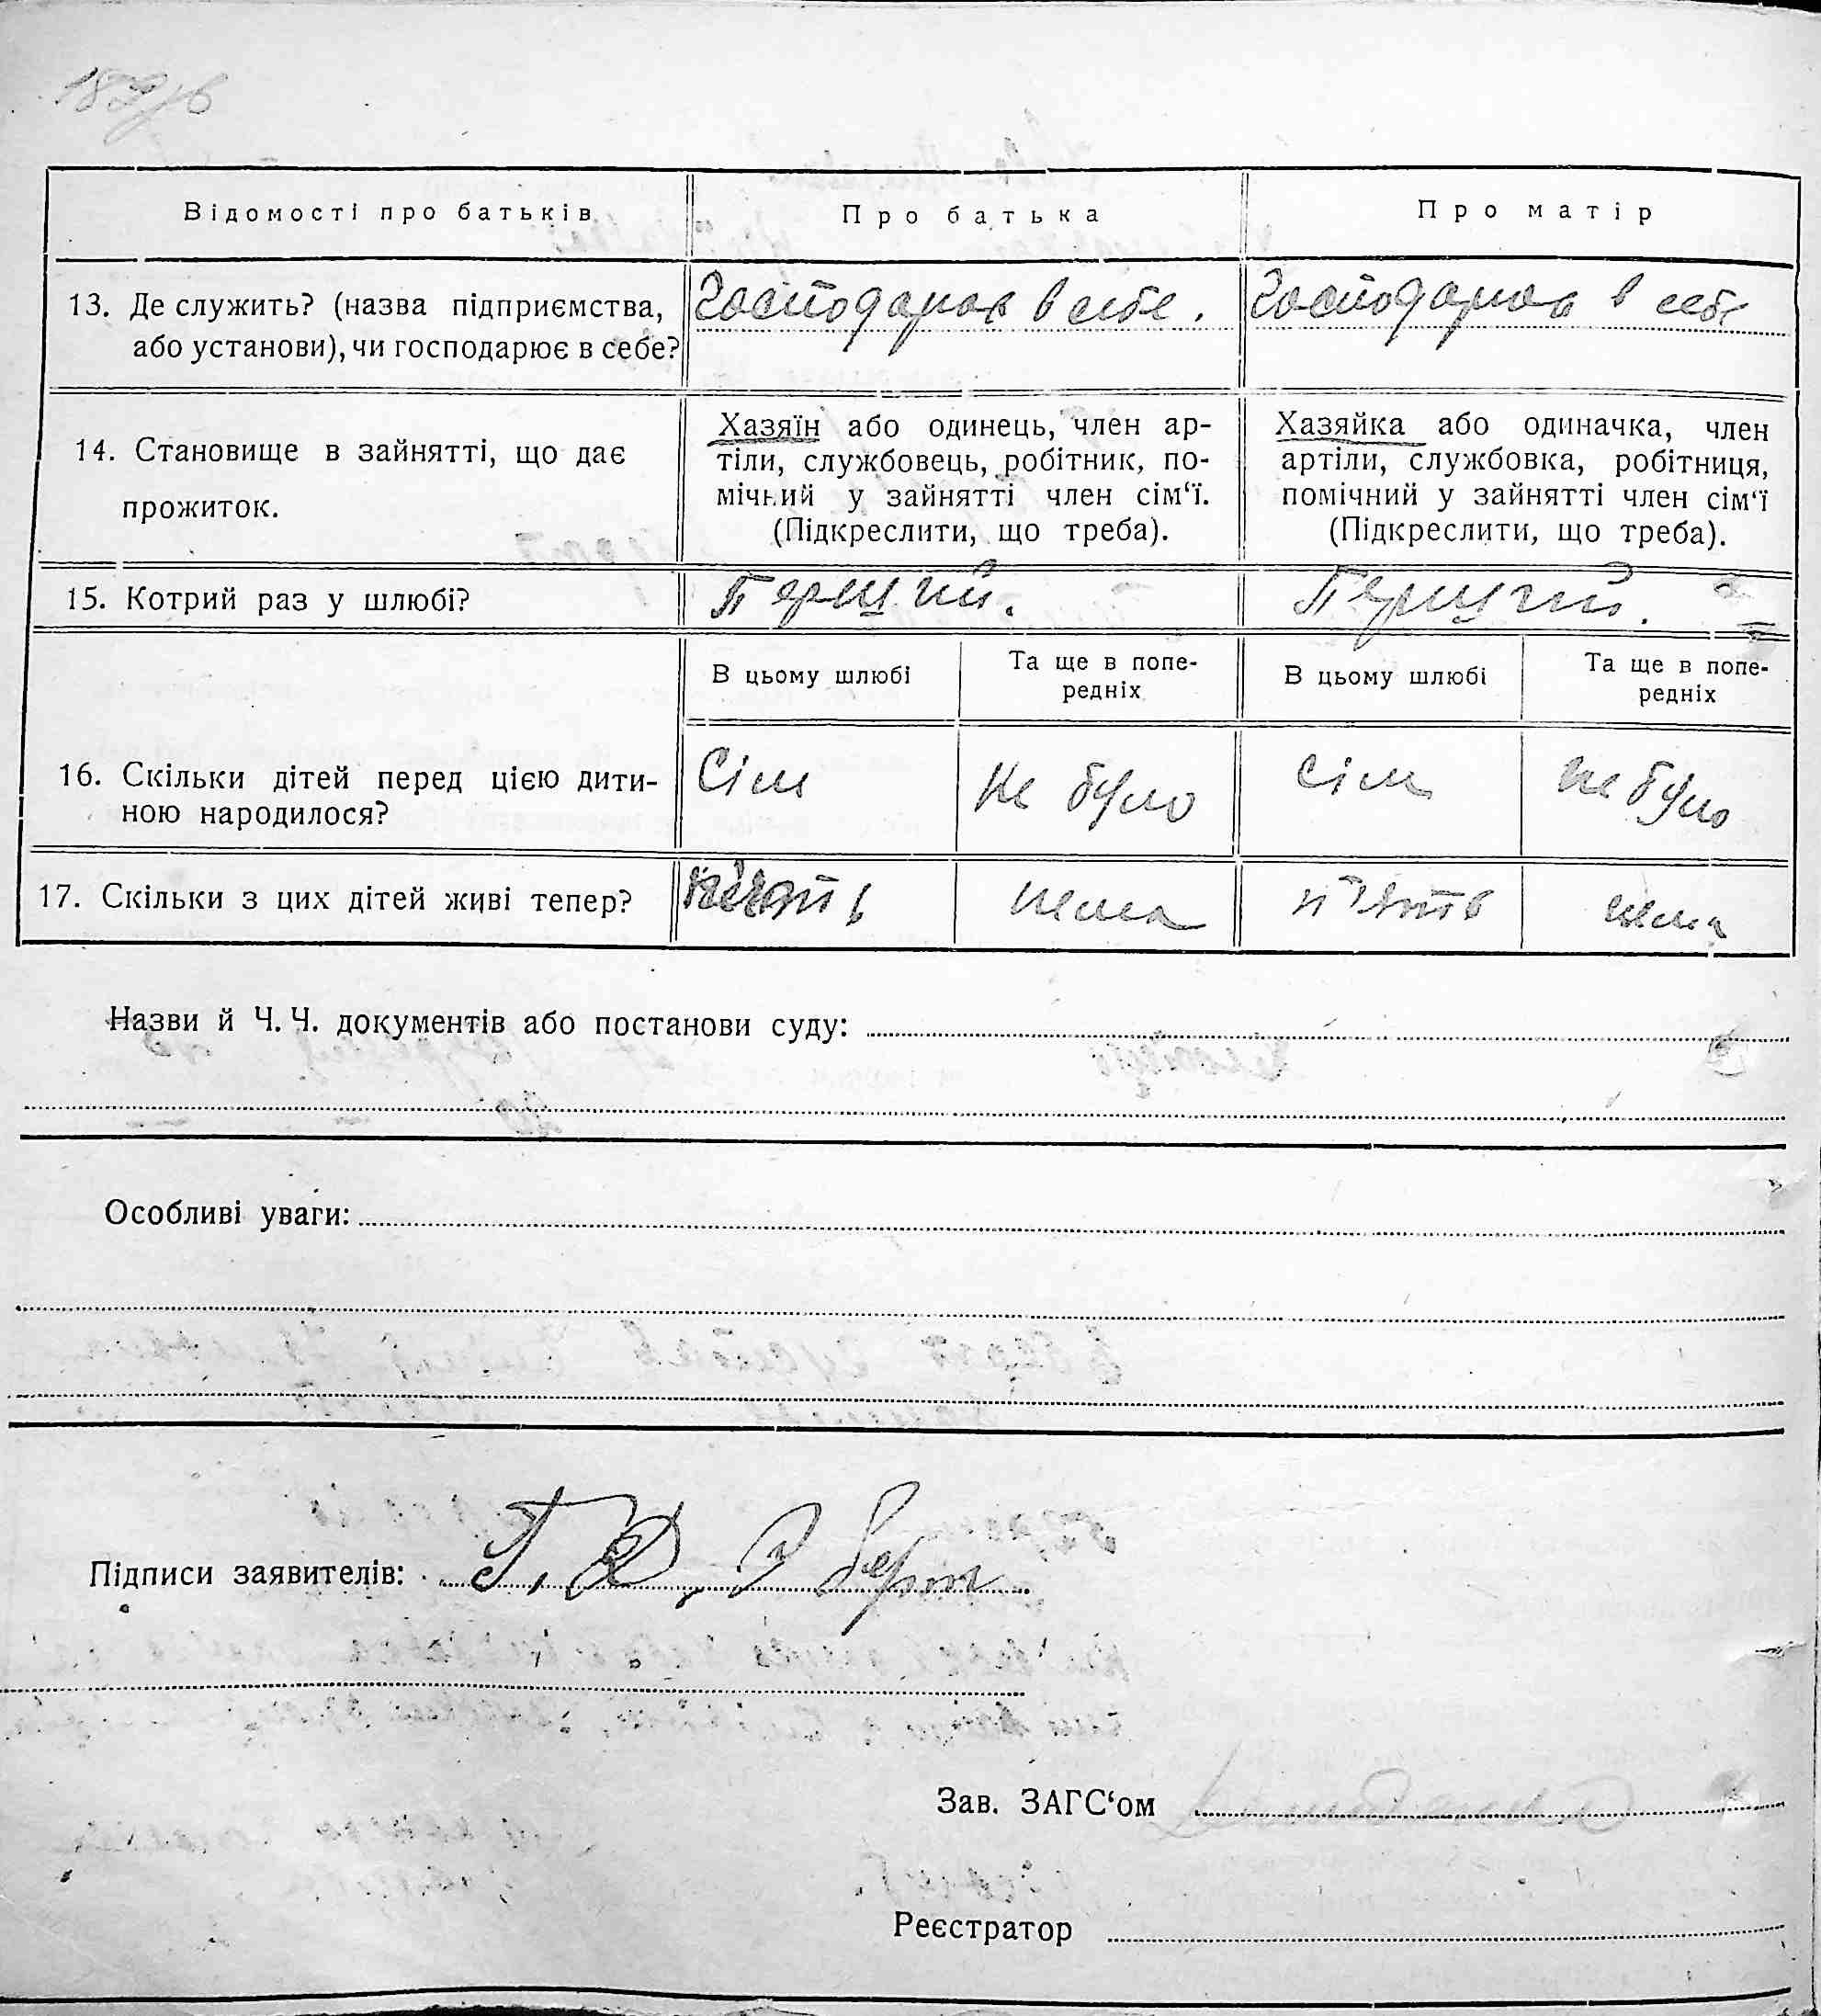 Відомості про батьків
Про батька
Про матір
13. Де служить? (назва підприємства,
або установи), чи господарює в себе?
Господарює в себе.
Господарює в себе
14. Становище в зайнятті, що дає
прожиток.
Хазяїн або одинець, член ар-
тіли, службовець, робітник, по-
мічний у зайнятті член сім‘ї.
(Підкреслити, що треба).
Хазяйка або одиначка, член
артіли, службовка, робітниця,
помічний у зайнятті член сім‘ї
(Підкреслити, що треба).
15. Котрий раз у шлюбі?
Перший.
Перший.
В цьому шлюбі
Та ще в попе-
редніх
В цьому шлюбі
Та ще в попе-
редніх
16. Скільки дітей перед цією дити-
ною народилося?
Сім
Не було
Сім
не було
17. Скільки з цих дітей живі тепер?
нема
п'ять
нема
Назви й Ч. Ч. документів або постанови суду:
Особливі уваги:
Підписи заявителів:
Зав. ЗАГС‘ом
Реєстратор